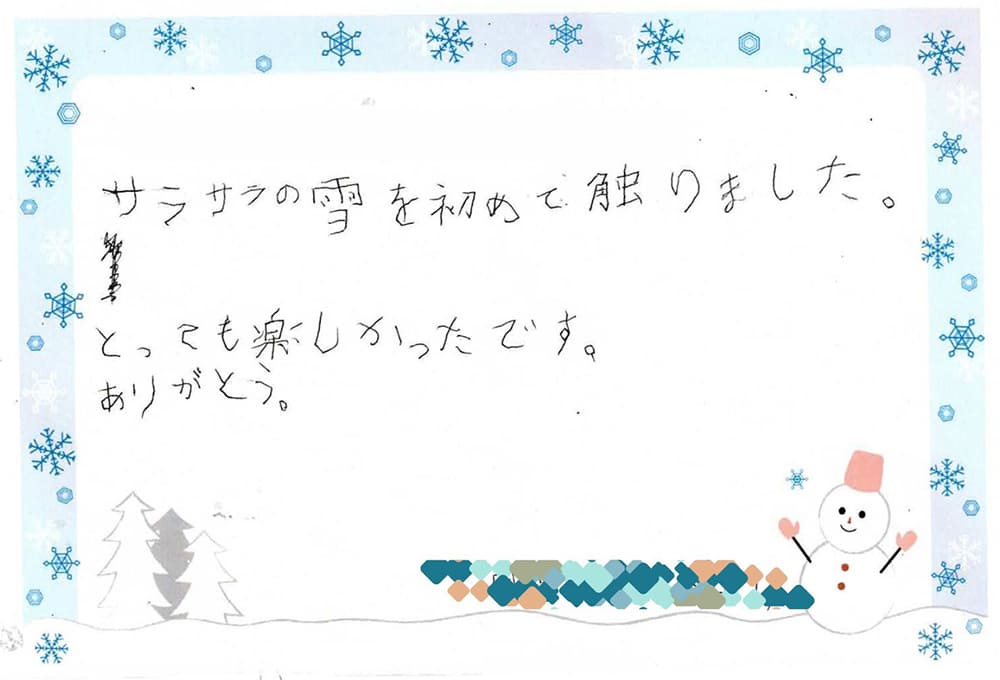 サラサラの雪を初めて触りました。
とっても楽しかったです。
ありがとう。